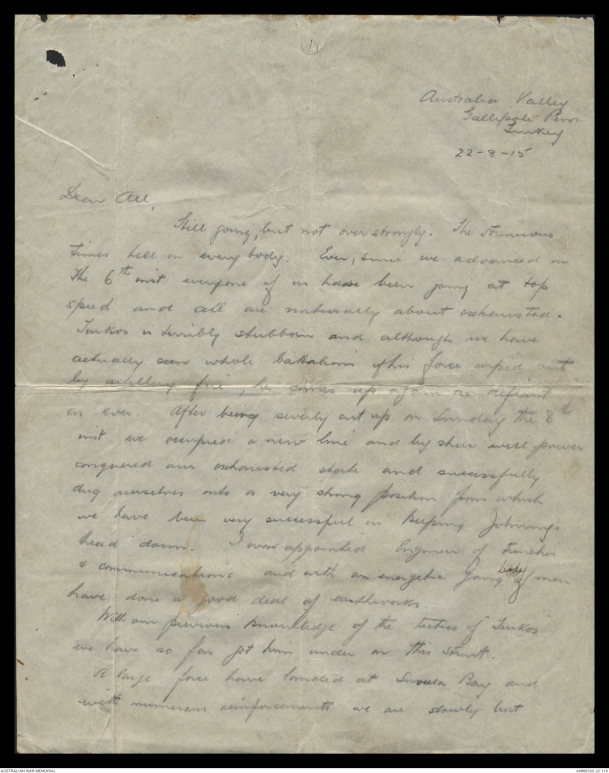 Australia Valley
Gallipoli Penn
Turkey
22-8-15
Dear All,
Still going, but not over strongly. The strenuous
times tell on every body. Ever, since we advanced on
the 6th inst everyone of us have been going at top
speed and all are naturally about exhausted.
Turkos is terribly stubborn and although we have
actually seen whole battalions of his force wiped out
by artillery fire, he comes up again as defiant
as ever. After being severely cut up on Sunday the 8th
inst we occupied a new line and by sheer will power
conquered our exhausted state and successfully
dug ourselves into a very strong position from which
we have been very successful in keeping Johnny's
head down. I was appointed Engineer of Trenches
& communications and with an energetic body of men
have done a good deal of earthworks.
With our previous knowledge of the tactics of Turkos
we have so far got him under on this stunt.
A large force have landed at Suvla Bay and
with numerous reinforcements we are slowly but
AUSTRALIAN WAR MEMORIAL